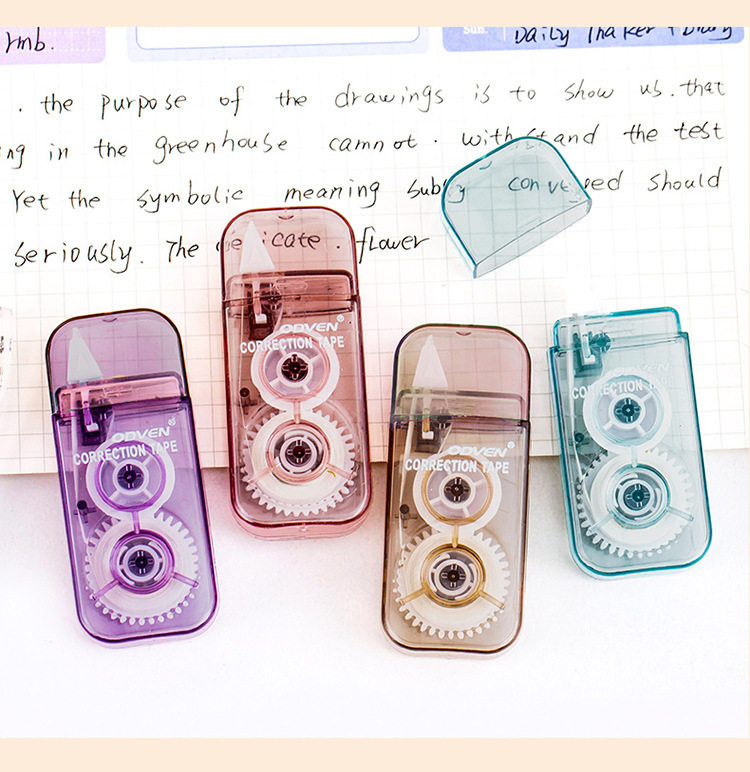 rmb.
Sun.
Daily Thaker + Diary
. the purpose of the drawings is to show us. that
ng in the greenhouse camnot. withstand the test
Yet the symbolic meaning should
seriously. The delicate. flower
ODVEN®
CORRECTION TAPE
ODVEN®
CORRECTION TAPE
ODVEN®
CORRECTION TAPE
CORRECTION TAPE